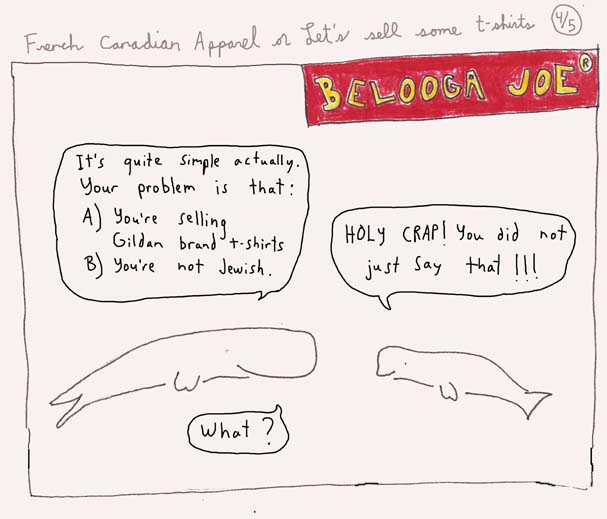 French Canadian Apparel or Let's sell some t-shirts 4/5
BELOOGA JOE®
It's quite simple actually.
Your problem is that:
A) You're selling
Gildan brand t-shirts
B) You're not Jewish.
HOLY CRAP! You did not
just say that !!!
What?